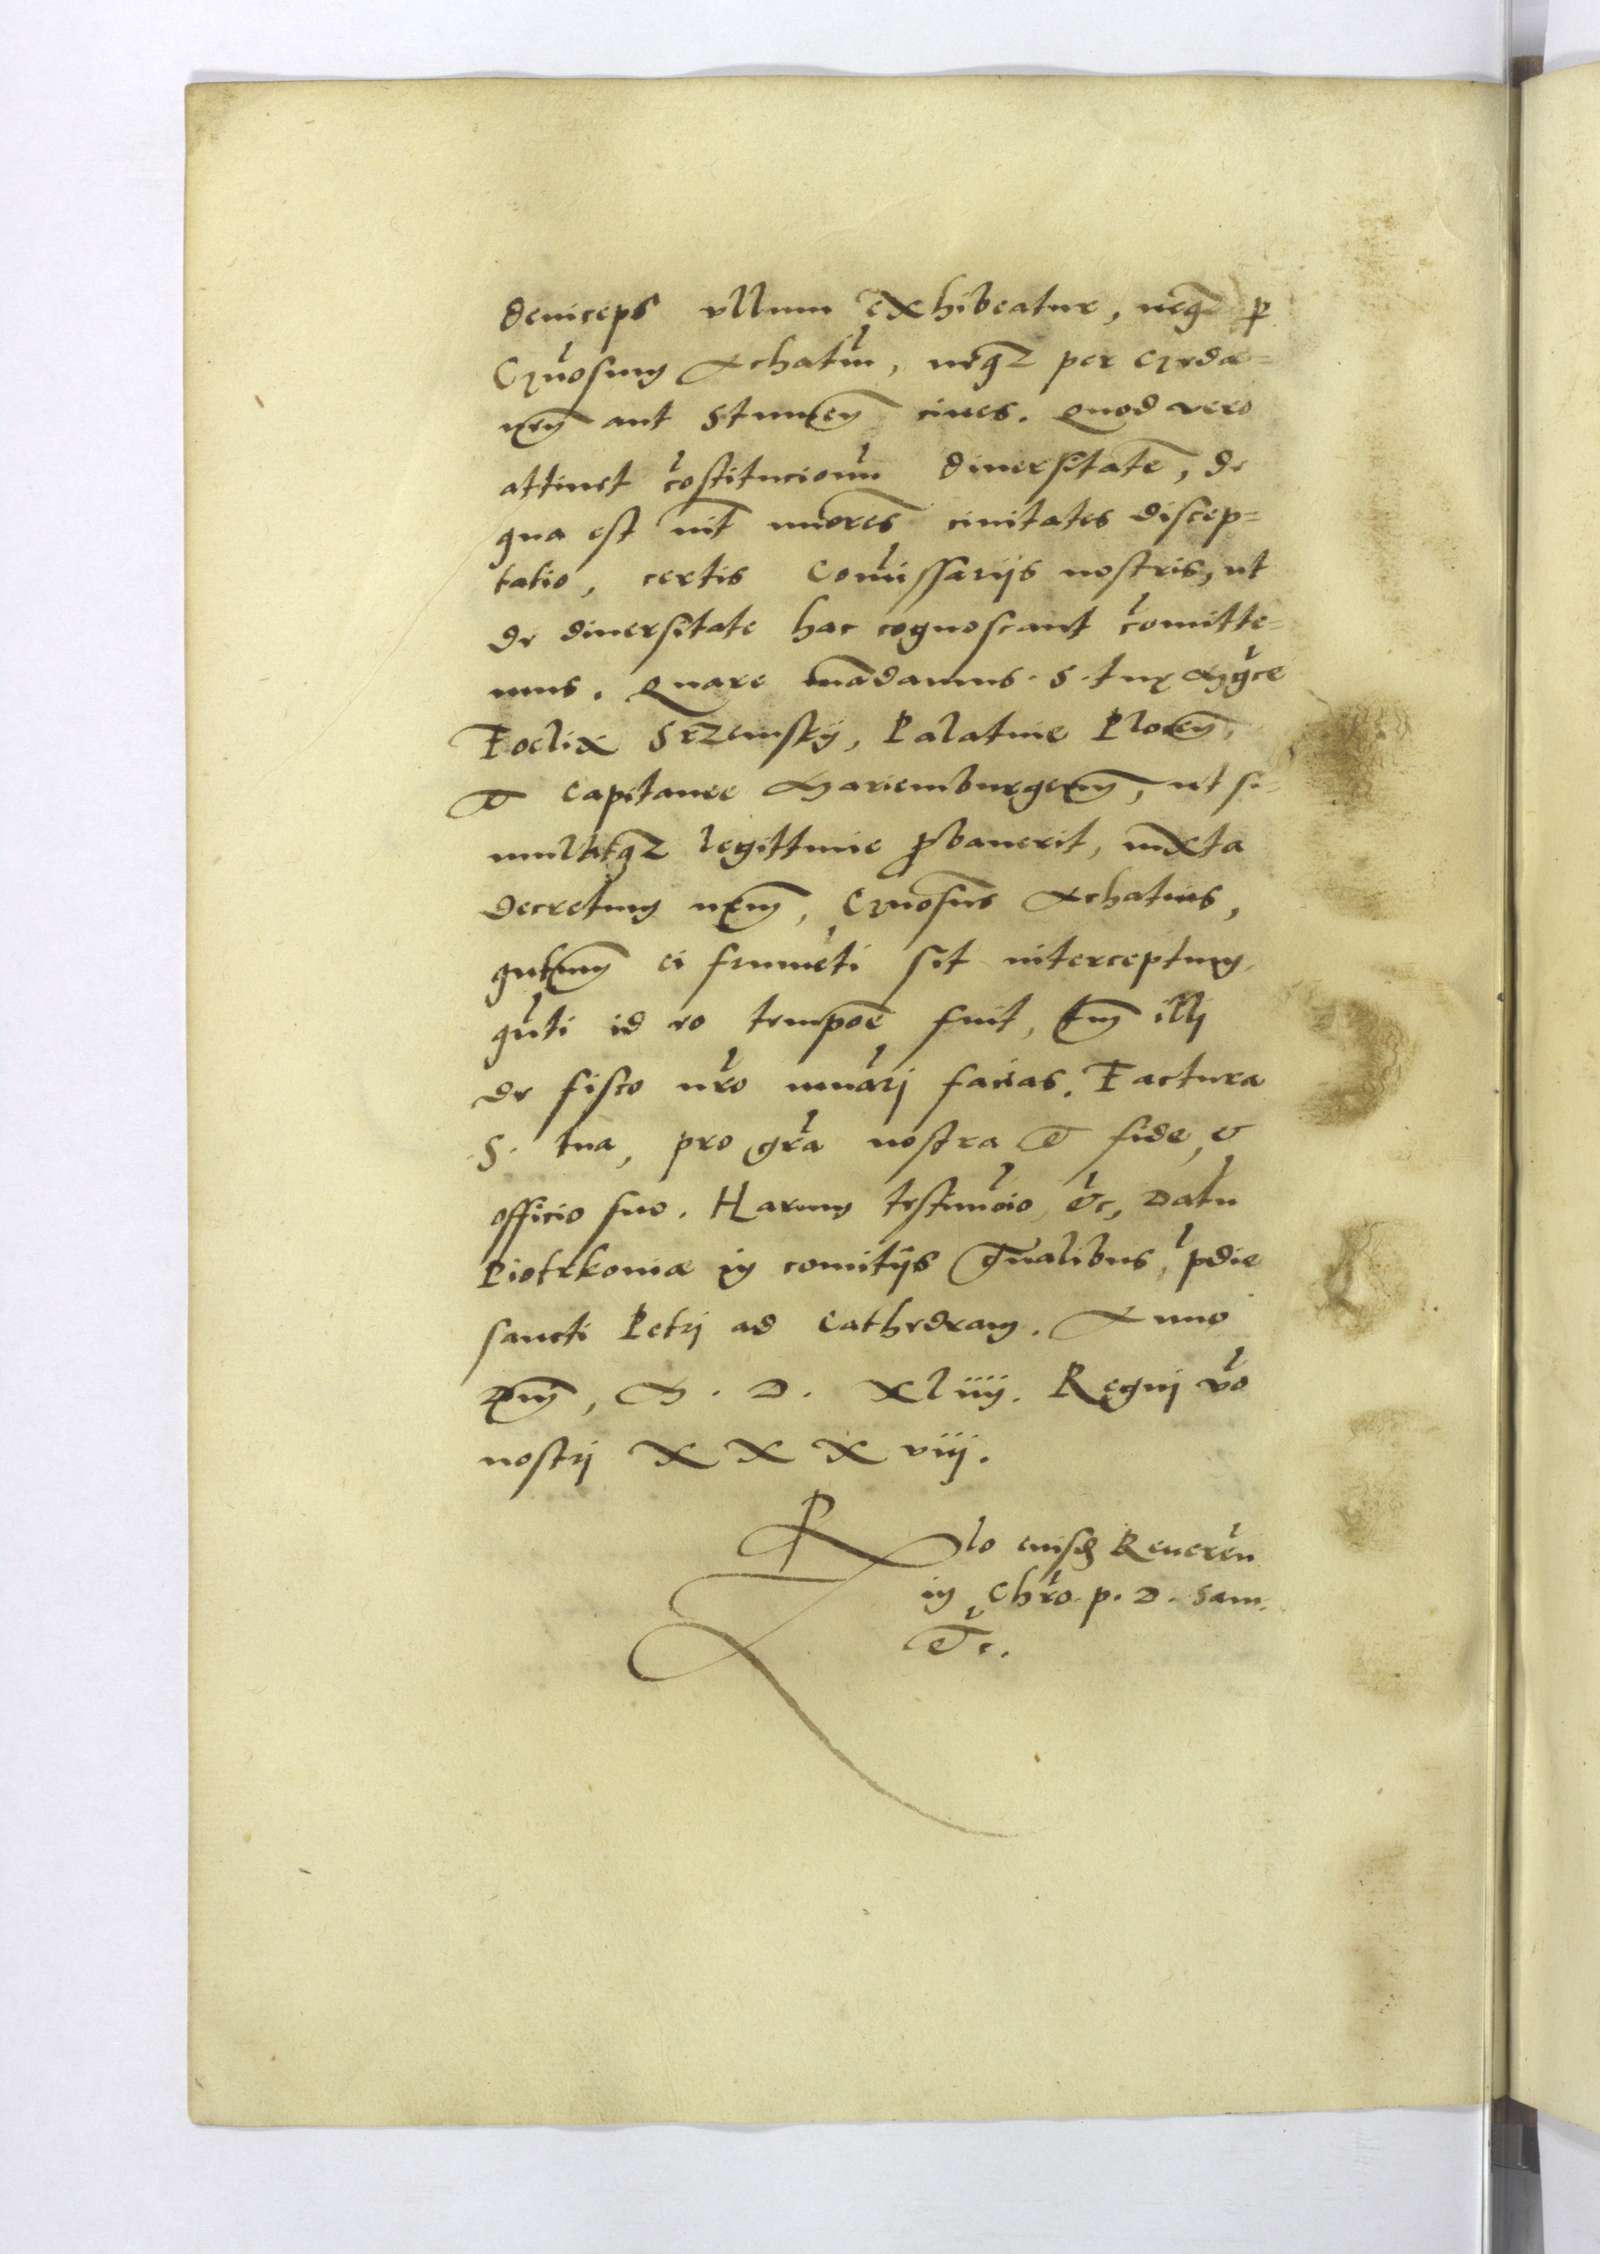 deinceps vllum exhibeatur, neqz p
Gn̄osum Achatiū, neqz per Geda-
nen̄ aut Stumen̄ ciues. Quod vero
attinet cōstitucionū diuersitatē, de
qua est int̄ minores ciuitates discep-
tatio, certis Com̄issarijs nostris, ut
de diuersitate hac cognoscant cōmitte-
mus. Quare mādamus S. tuę Mgce
Foelix Srzemsky, Palatine Plocen̄,
& Capitanee Mariemburgen̄, ut si-
mulatqz legittime ꝓbauerit, iuxta
decretum nr̄m, Gn̄osus Achatius,
qutum̄ ei frumēti sit interceptum,
quāti id eo tempoē fuit, tm̄ illi
de fisco nr̄o nūari facias. Factura
S. tua, pro gr̄a nostra & fide, &
officio suo. Harum testimōio &c, Datū
Piotrkouiæ in comitijs gn̄alibus, pdie
sancti Petri ad Cathedram. Anno
Dn̄i, M. D. XLiiij. Regni vō
nostri XXXviij.
Rlo eiusdē Reueren̄
in Chr̄o. p. D. Sam.
&c.